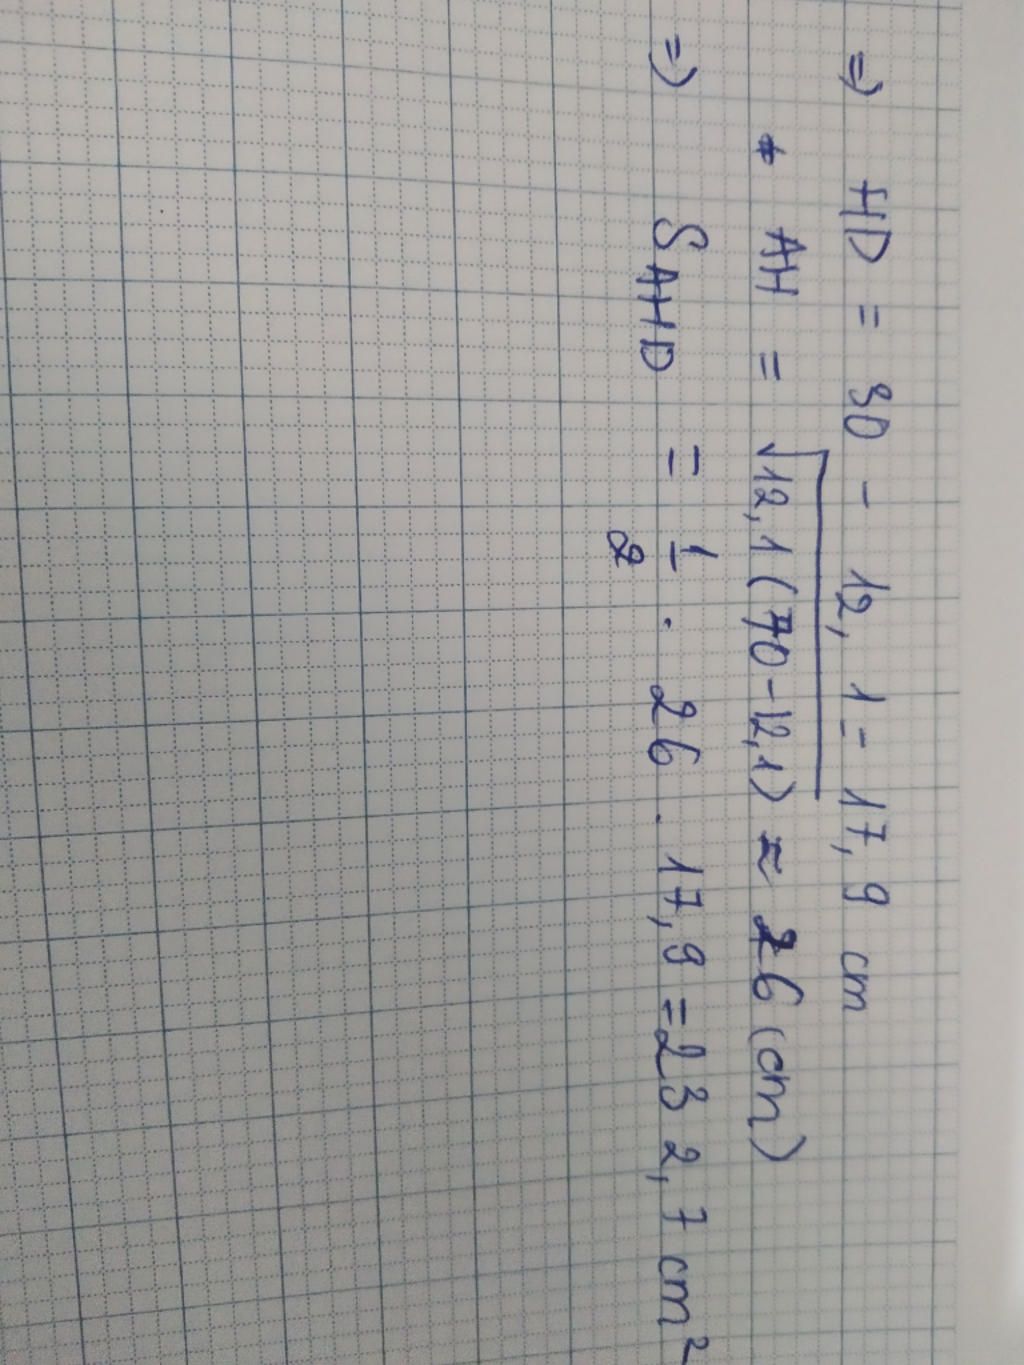 => HD = 30 - 12,1 = 17,9 cm
* AH = √12,1(70-12,1) ≈ 26 (cm)
=> SAHD = 1/2 . 26 . 17,9 = 232,7 cm²